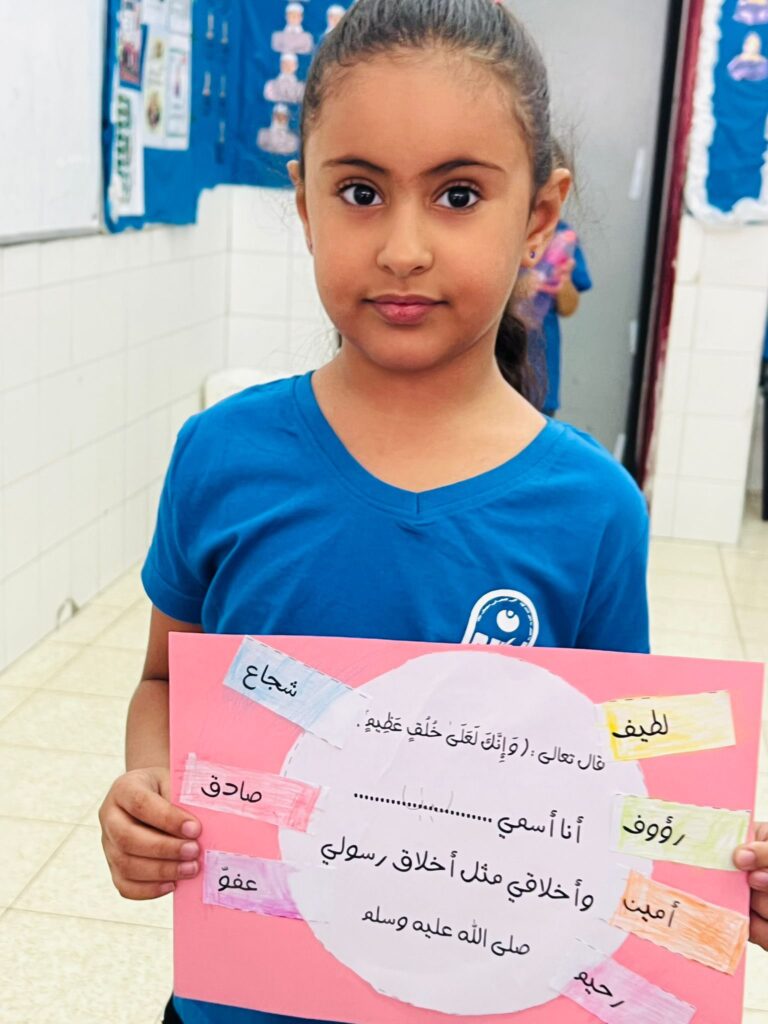 قال تعالى : ( وَإِنَّكَ لَعَلَىٰ خُلُقٍ عَظِيمٍ ) .
أنا أسمي ........................
وأخلاقي مثل أخلاق رسولي
صلى الله عليه وسلم
لطيف
رؤوف
أمين
رحيم
شجاع
صادق
عفوّ